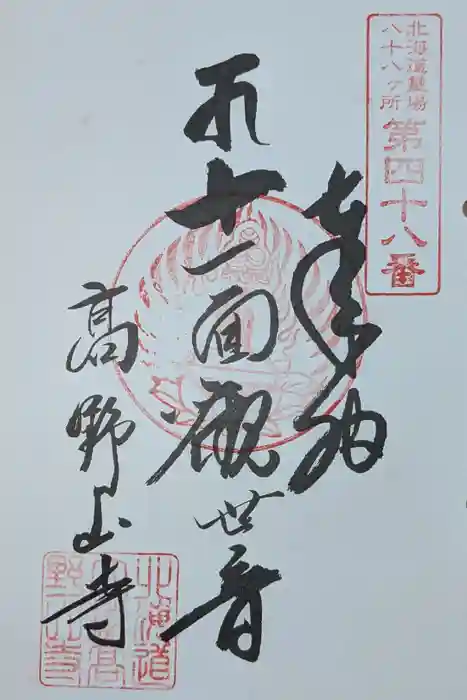 北海道霊場
八十八ヶ所
第四十八番
奉納
十一面観世音
高野山寺